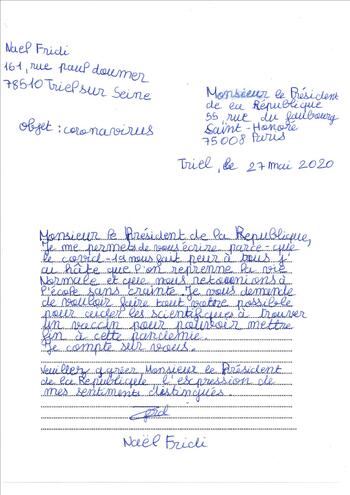 Nael Fridi
161, rue paul doumer
78510 Triel sur Seine
Monsieur le Président
de la République
55 rue du faubourg
Saint-Honoré
75008 Paris
objet : coronavirus
Triel, le 27 mai 2020
Monsieur le Président de la République,
Je me permets de vous écrire parce-que
le covid-19 nous fait peur à tous j'
ai hâte que l'on reprenne la vie
normale et que nous retournions à
l'école sans crainte. Je vous demande
de vouloir faire tout votre possible
pour aider les scientifiques à trouver
un vaccin pour pouvoir mettre
fin à cette pandémie.
Je compte sur vous.
Veuillez agréer, Monsieur le Président
de la République, l'espression de
mes sentiments distingués.
Naël Fridi